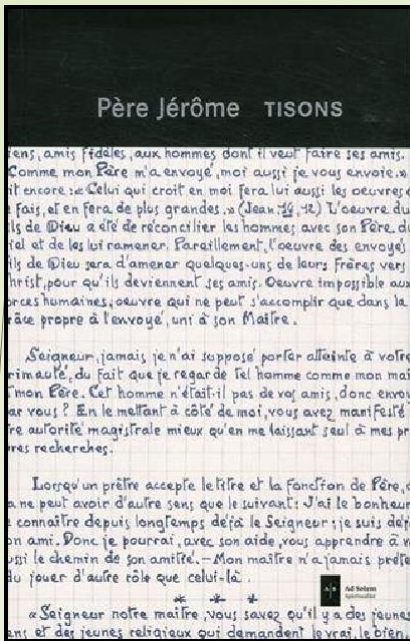 Père Jérôme TISONS
iens, amis fidèles, aux hommes dont il veut faire ses amis.
Comme mon Père m'a envoyé, moi aussi je vous envoie.»
it encore: «Celui qui croit en moi fera lui aussi les oeuvres
fais, et en fera de plus grandes.» (Jean: 14, 12) L'oeuvre du
ls de Dieu a été de réconcilier les hommes avec son Père, du
iel et de les lui ramener. Pareillement, l'oeuvre des envoyés
ils de Dieu sera d'amener quelques-uns de leurs frères vers
hrist, pour qu'ils deviennent ses amis. Oeuvre impossible aux
orces humaines, oeuvre qui ne peut s'accomplir que dans la
râce propre à l'envoyé, uni à son Maître.
Seigneur, jamais je n'ai supposé porter atteinte à votre
rimauté, du fait que je regarde tel homme comme mon maî
t mon Père. Cet homme n'était-il pas de vos amis, donc envoy
ar vous? En le mettant à côté de moi, vous avez manifesté
re autorité magistrale mieux qu'en me laissant seul à mes pr
res recherches.
Lorsqu'un prêtre accepte le titre et la fonction de Père, c
a ne peut avoir d'autre sens que le suivant: J'ai le bonheur
e connaître depuis longtemps déjà le Seigneur; je suis déj
on ami. Donc je pourrai, avec son aide, vous apprendre à v
ussi le chemin de son amitié. – Mon maître n'a jamais préte
du jouer d'autre rôle que celui-là.
* * *
«Seigneur notre maître, vous savez qu'il y a des jeunes
ens et des jeunes religieux qui demandent le vrai, le bien
Ad Solem